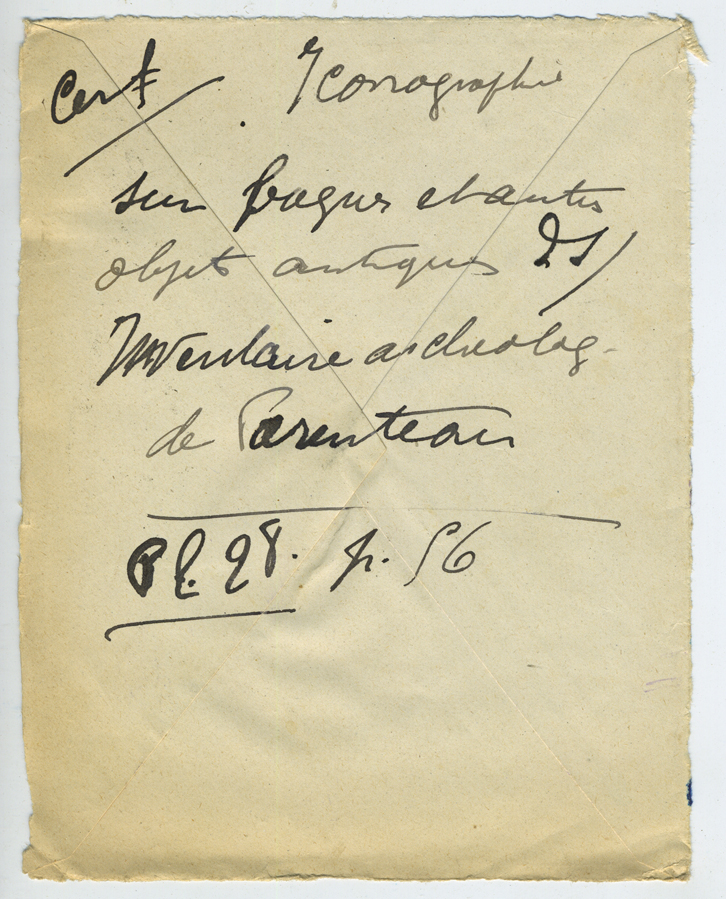 Cerf. Iconographie
sur bagues et autres
objets antiques ds/
Inventaire archéolog-
de Parenteau
Pl. 28. p. 56